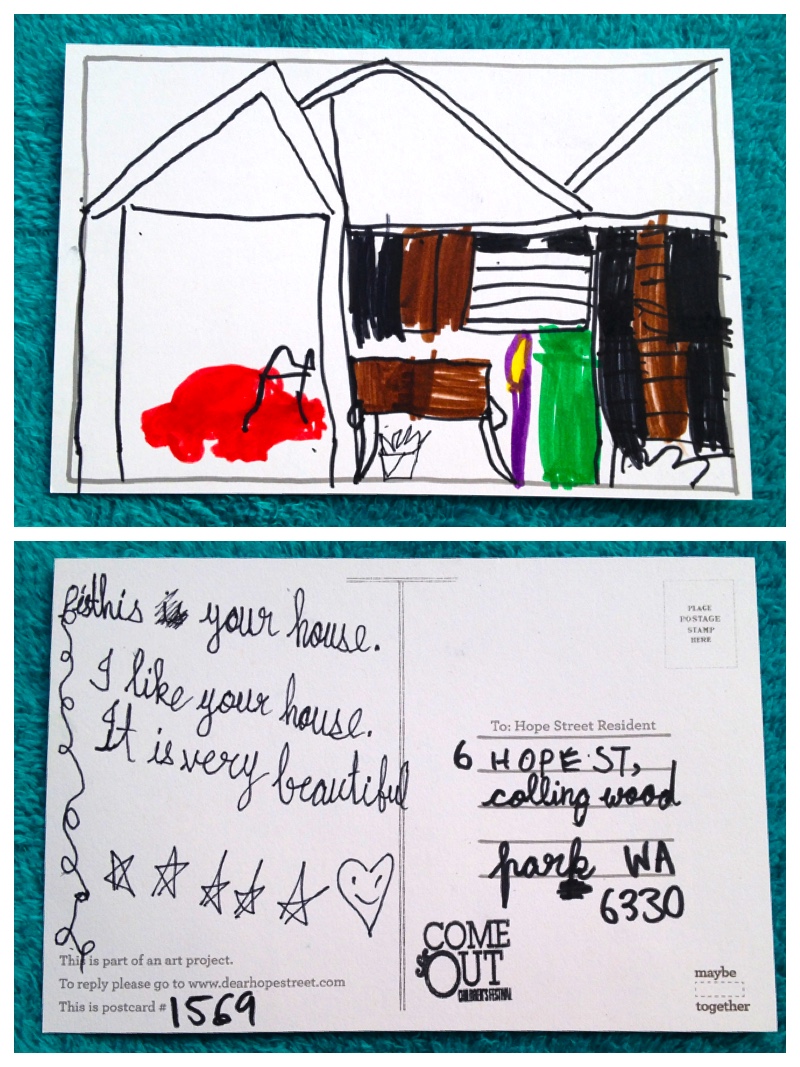 this is your house.
I like your house.
It is very beautiful
This is part of an art project.
To reply please go to www.dearhopestreet.com
This is postcard # 1569
PLACE
POSTAGE
STAMP
HERE
To: Hope Street Resident
6 HOPE ST,
colling wood
park WA
6330
COME
OUT
CHILDREN'S FESTIVAL
maybe
together